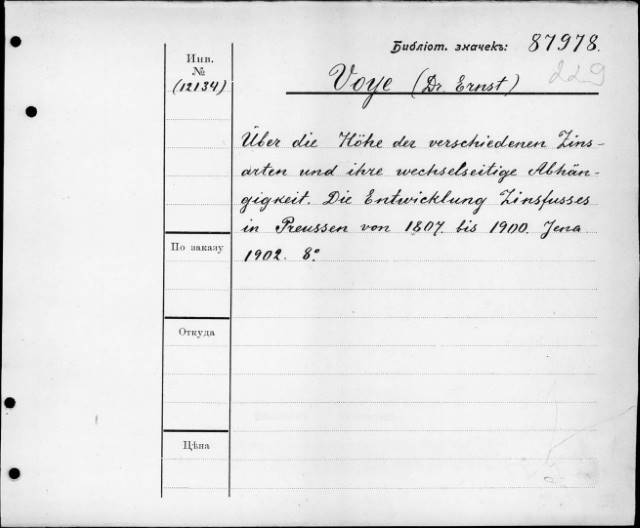 Библіот. значекъ: 87978.
Инв.
№
(12134)
Voye (Dr. Ernst)
229
Über die Höhe der verschiedenen Zins-
arten und ihre wechselseitige Abhän-
gigkeit. Die Entwicklung Zinsfusses
in Preussen von 1807. bis 1900. Jena
1902. 8°.
По заказу
Откуда
Цѣна